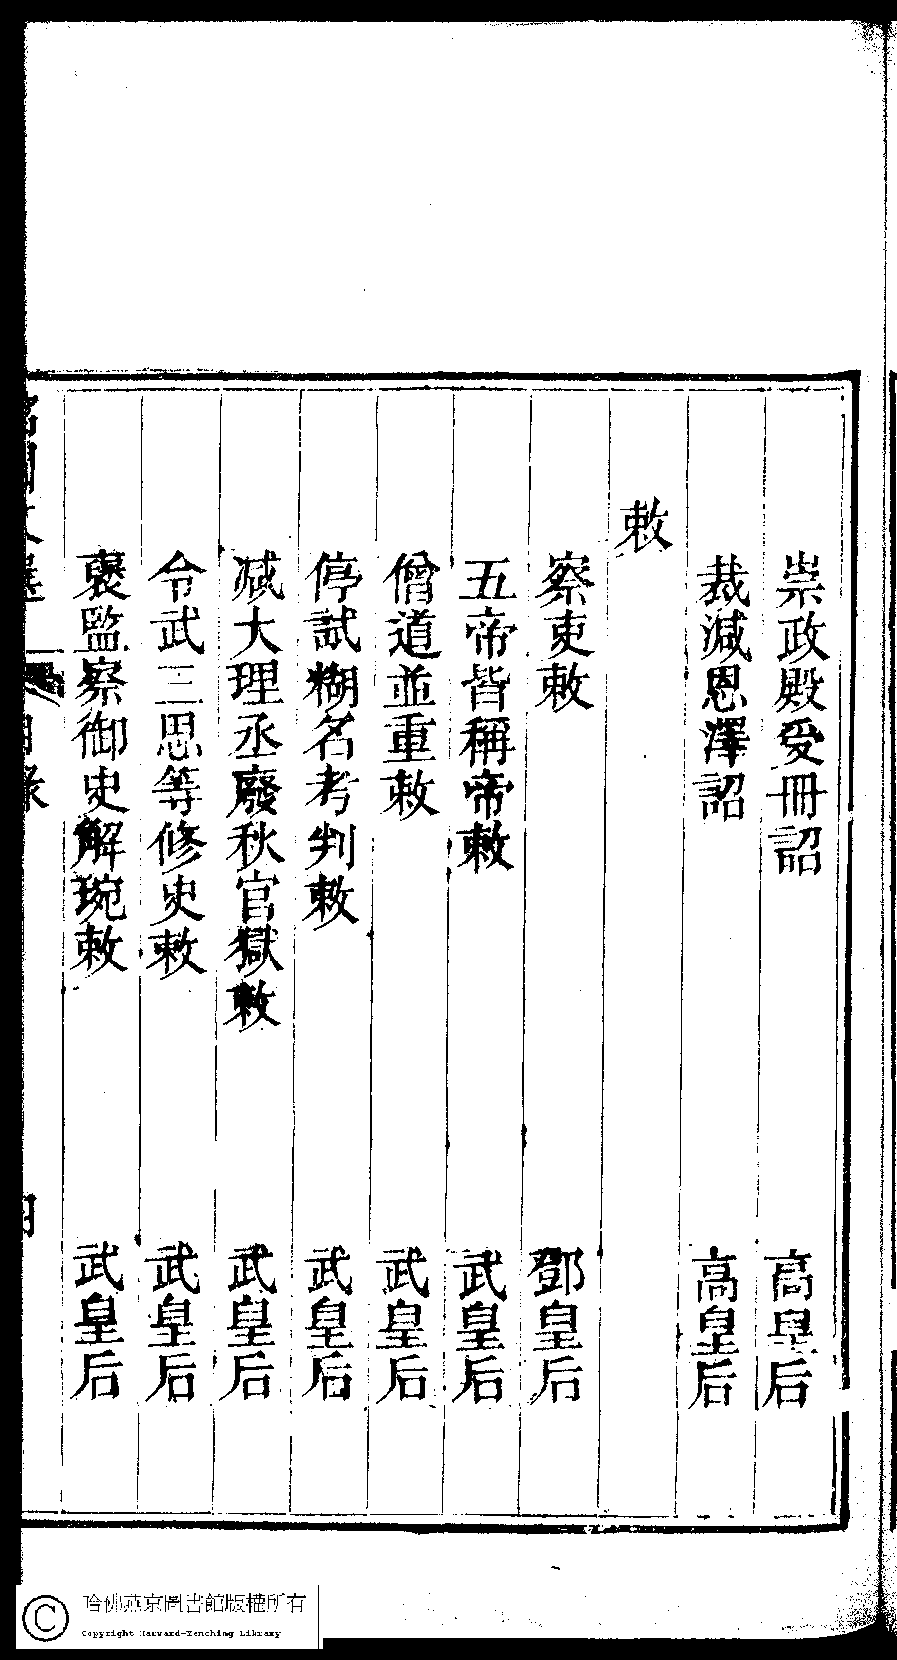 崇政殿受冊詔　高皇后
裁減恩澤詔　高皇后
敕
察吏敕　鄧皇后
五帝皆稱帝敕　武皇后
僧道並重敕　武皇后
停試糊名考判敕　武皇后
减大理丞廢秋官獄敕　武皇后
令武三思等修史敕　武皇后
褒監察御史解琬敕　武皇后
文選　目錄　四
哈佛燕京圖書館版權所有
Copyright Harvard-Yenching Library